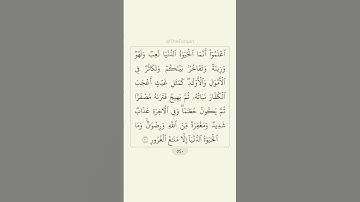 @TheForqan
ٱعۡلَمُوٓاْ أَنَّمَا ٱلۡحَيَوٰةُ ٱلدُّنۡيَا لَعِبٞ وَلَهۡوٞ
وَزِينَةٞ وَتَفَاخُرُۢ بَيۡنَكُمۡ وَتَكَاثُرٞ فِي
ٱلۡأَمۡوَٰلِ وَٱلۡأَوۡلَٰدِۖ كَمَثَلِ غَيۡثٍ أَعۡجَبَ
ٱلۡكُفَّارَ نَبَاتُهُۥ ثُمَّ يَهِيجُ فَتَرَىٰهُ مُصۡفَرّٗا
ثُمَّ يَكُونُ حُطَٰمٗاۖ وَفِي ٱلۡأٓخِرَةِ عَذَابٞ
شَدِيدٞ وَمَغۡفِرَةٞ مِّنَ ٱللَّهِ وَرِضۡوَٰنٞۚ وَمَا
ٱلۡحَيَوٰةُ ٱلدُّنۡيَآ إِلَّا مَتَٰعُ ٱلۡغُرُورِ ٢٠
٥٤٠